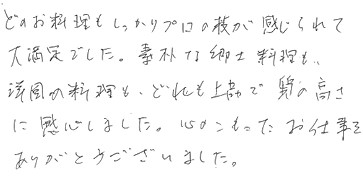 どのお料理もしっかりプロの技が感じられて
大満足でした。素朴な郷土料理も、
洋風のお料理も、どれも上品で 質の高さ
に感心しました。心のこもったお仕事を
ありがとうございました。